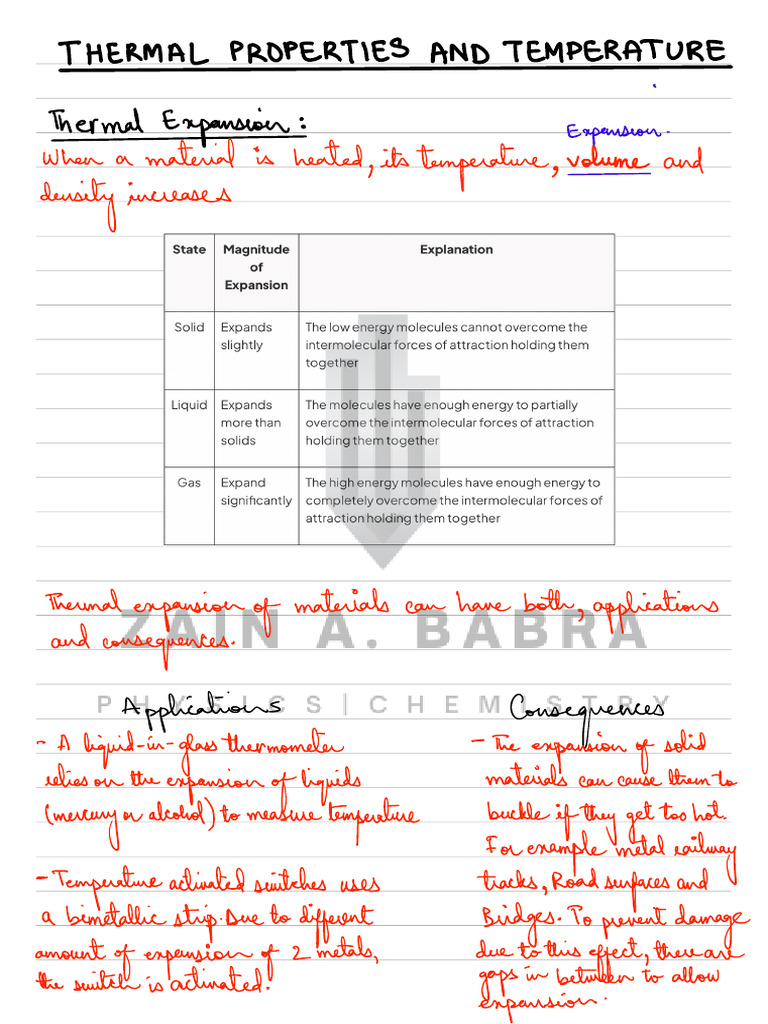 THERMAL PROPERTIES AND TEMPERATURE
Thermal Expansion:
Expansion.
When a material is heated, its temperature, volume and
density increases
State Magnitude of Expansion Explanation
Solid Expands slightly The low energy molecules cannot overcome the intermolecular forces of attraction holding them together
Liquid Expands more than solids The molecules have enough energy to partially overcome the intermolecular forces of attraction holding them together
Gas Expand significantly The high energy molecules have enough energy to completely overcome the intermolecular forces of attraction holding them together
Thermal expansion of materials can have both, applications
and consequences.
ZAIN A. BABRA
PHYSICS|CHEMISTRY
Applications
- A liquid-in-glass thermometer
relies on the expansion of liquids
(mercury or alcohol) to measure temperature
- Temperature activated switches uses
a bimetallic strip. Due to different
amount of expansion of 2 metals,
the switch is activated.
Consequences
- The expansion of solid
materials can cause them to
buckle if they get too hot.
For example metal railway
tracks, Road surfaces and
Bridges. To prevent damage
due to this effect, there are
gaps in between to allow
expansion.